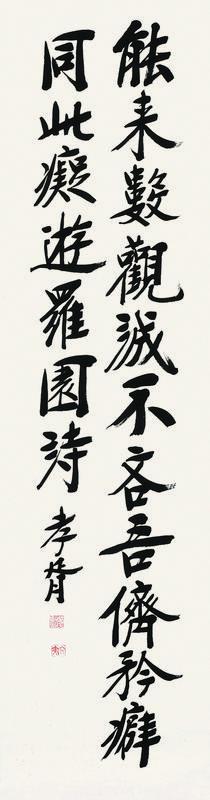 能来數觀誠不吝吾儕矜癖
同此癡遊羅園詩 孝胥